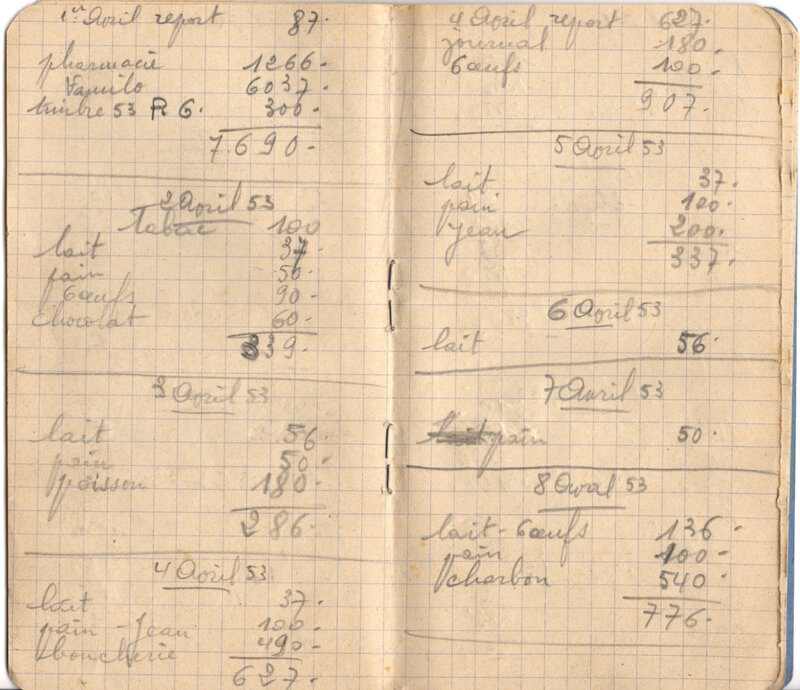 1er Avril report 87.
pharmacie 1266.
Familo 6037.
timbre 53 R 6. 300.
7.690.
2 Avril 53
Tabac 100
lait 37.
pain 50.
6 œufs 90.
chocolat 60.
339.
3 Avril 53
lait 56.
pain 50.
poisson 180.
286.
4 Avril 53
lait 37.
pain - Jean 100.
boucherie 490.
627.
4 Avril report 627.
journal 180.
6 œufs 100.
907.
5 Avril 53
lait 37.
pain 100.
Jean 200.
337.
6 Avril 53
lait 56.
7 Avril 53
pain 50.
8 Avril 53
lait - 6 œufs 136.
pain 100.
charbon 540.
776.